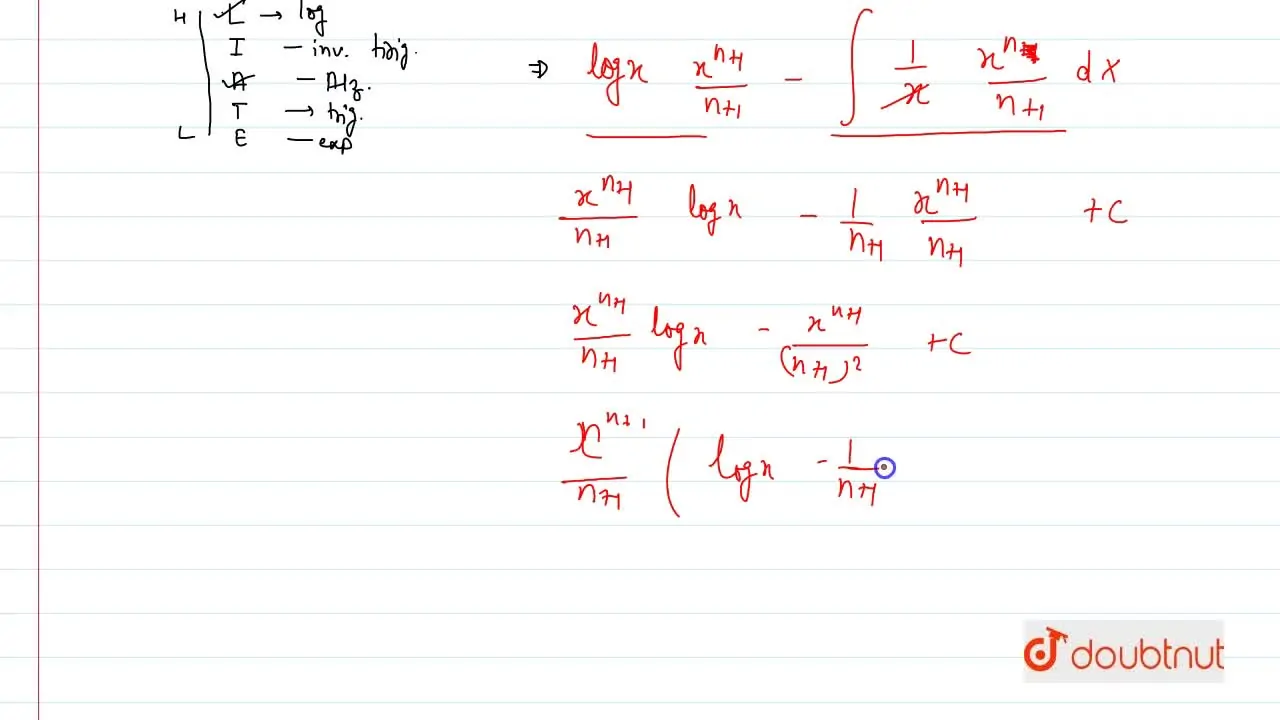 H L → log
I – inv. trig.
A – Alg.
T → trig.
L E – exp
⇒ logx x^{n+1}/n+1 – ∫ 1/x x^{n}/n+1 dx
x^{n+1}/n+1 logx – 1/n+1 x^{n+1}/n+1 + C
x^{n+1}/n+1 logx – x^{n+1}/(n+1)^2 + C
x^{n+1}/n+1 ( logx – 1/n+1
doubtnut